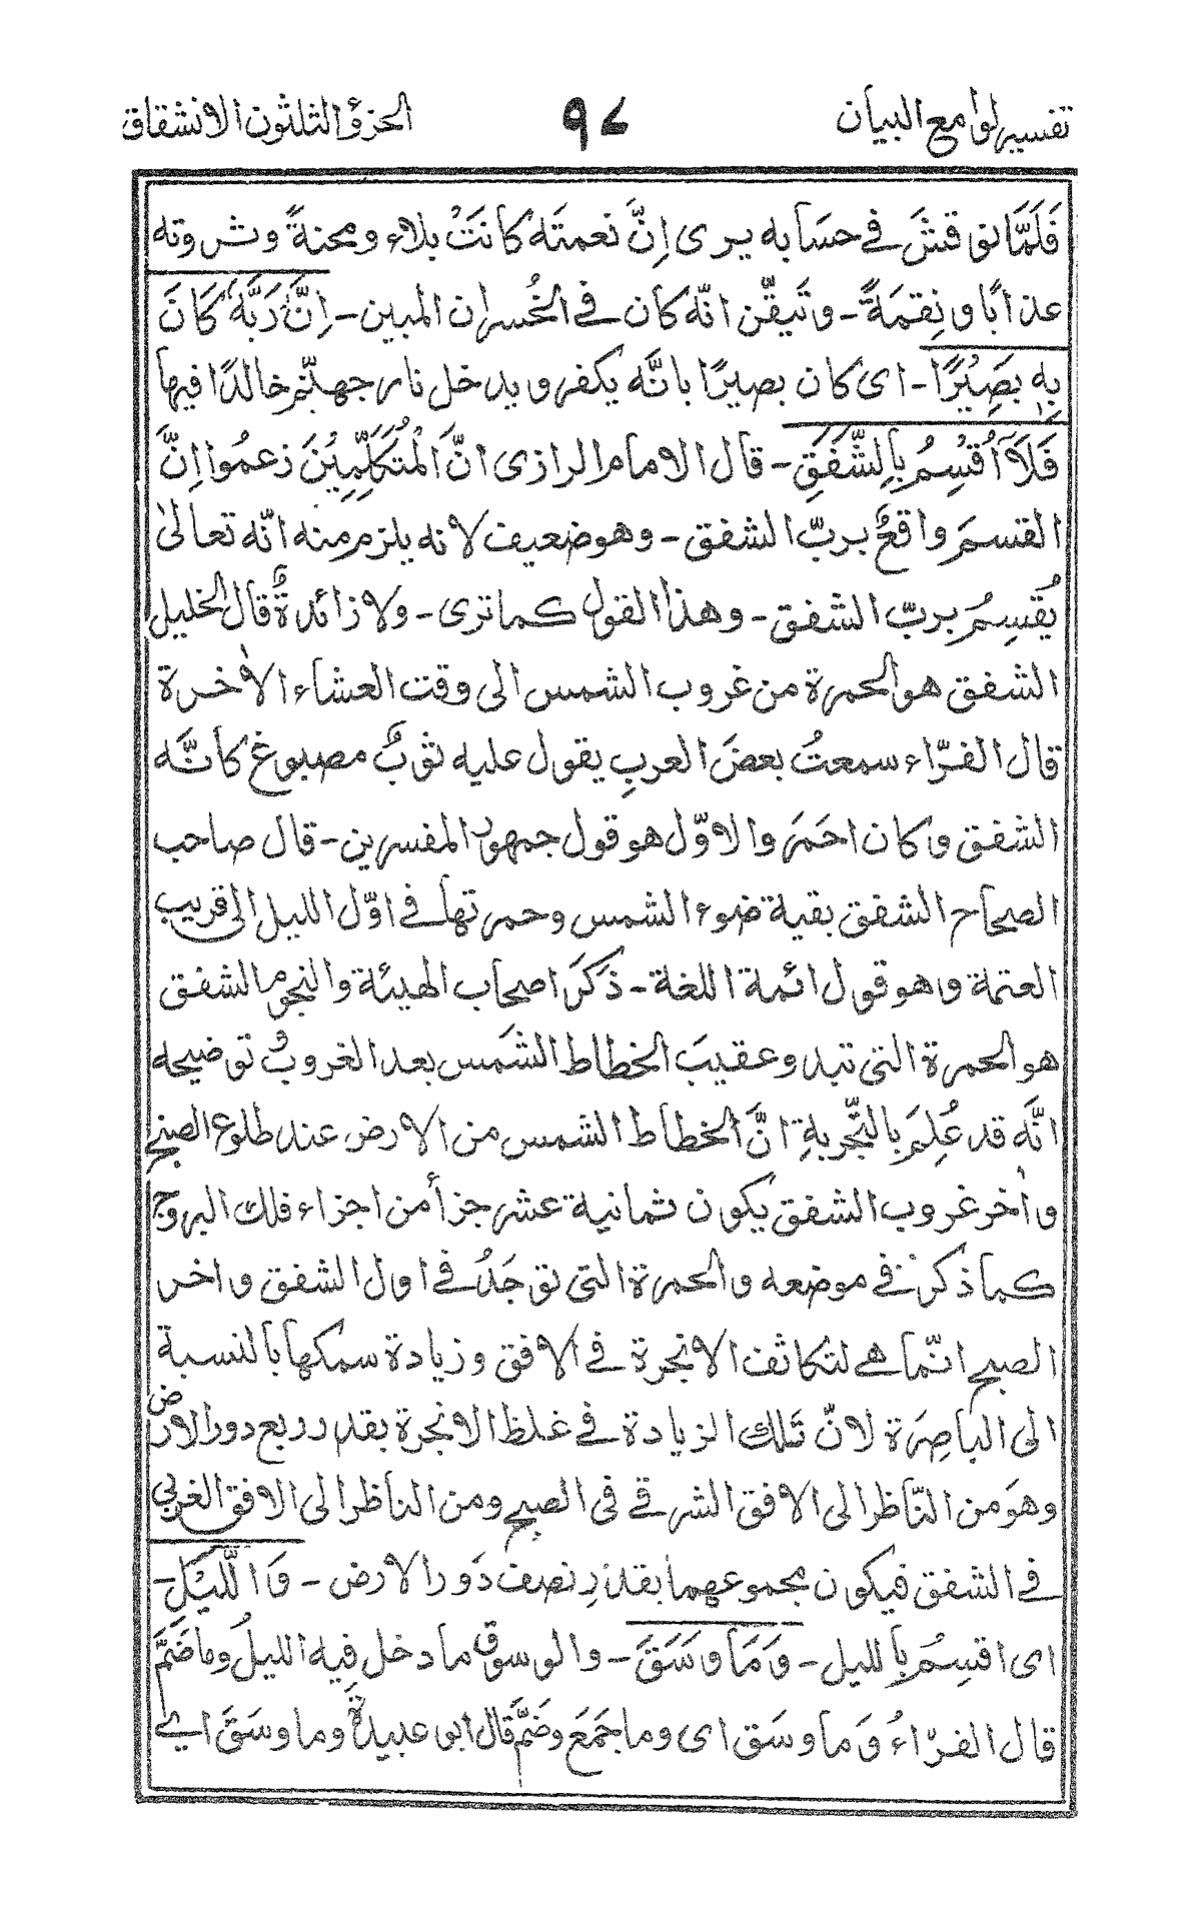 تفسير لوامع البيان ٩٧ الجزؤ الثلثون الانشقاق
فَلَمَّا نوقشَ فے حسَابه يرى اِنَّ نعمتَه كانَتْ بلاء ومحنةً وثروته
عذابًا ونِقمَةً - وتَيقّن انّه كان فے الخُسران المبين - اِنَّ رَبَّهٗ كَانَ
بِهٖ بَصِيْرًا - اى كان بصيرًا بانَّه يكفر ويدخل نار جهنّم خالدًا فيها
فَلَآ اُقْسِمُ بِالشَّفَقِ - قال الامام الرازى انَّ الْمُتَكَلِّمِيْنَ زعمُوا اِنَّ
القسمَ واقعٌ بربّ الشفق - وهو ضعيف لانه يلزم منه انّه تعالىٰ
يُقسِمُ بربّ الشفق - وهذا القول كما ترى - ولا زائدةٌ قال الخليل
الشفق هو الحمرة من غروب الشمس الى وقت العشاء الاٰخرة
قال الفرّاء سمعتُ بعضَ العربِ يقول عليه ثوبٌ مصبوغ كانَّه
الشفق وكان احمَرَ والاوّل هو قول جمهور المفسرين - قال صاحب
الصحاح الشفق بقية ضوء الشمس وحمرتها فے اوّل الليل الى قريب
العتمة وهو قول ائمة اللغة - ذكَرَ اصحاب الهيئة والنجوم الشفق
هو الحمرة التى تبدو عقيبَ انحطاط الشمَس بعد الغروبُ توضيحه
انَّه قد عُلِمَ بالتّجربةِ انَّ انحطاط الشمس من الارض عند طلوع الصبح
واٰخر غروب الشفق يكون ثمانية عشر جزأ من اجزاء فلك البروج
كما ذكر فے موضعه والحمرة التى توجَدُ فے اول الشفق واخر
الصبح انّما هے لتكاثف الابخرة فے الافق وزيادة سمكها بالنسبة
الى الباصِرَة لانّ تَلك الزيادة فے غلظ الابخرة بقدر ربع دور الارض
وهوَ من النّاظر الى الافق الشرقے فى الصبح ومن الناظر الى الافق الغربي
فے الشفق فيكون مجموعهما بقدرِ نصف دَور الارض - وَالَّليْلِ -
اى اقسِمُ بِالليل - وَمَا وَسَقَ - والوسوق ما دخل فِيه الليلُ وما ضَمَّ
قال الفرّاءُ وَما وسَق اى وما جمَعَ وضَمَّ قال ابو عبيدة وما وسَقَ اے